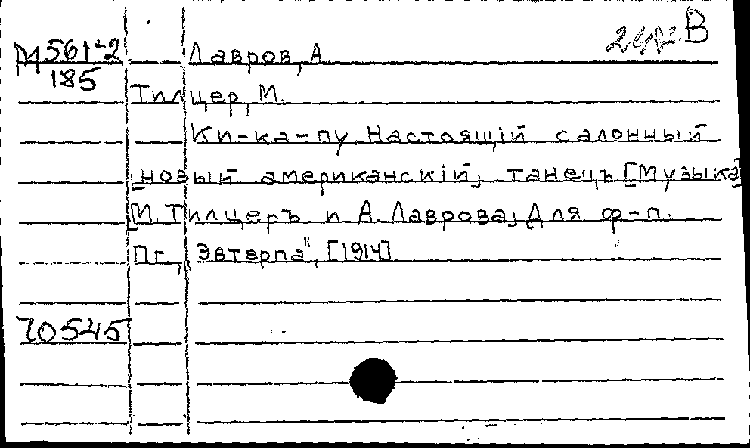 В
М 561-2 Лавров, А
185
Тилцер, М.
Ки-ка-пу. Настоящій салонный
новый американскій, танецъ [Музыка]
М. Тилцеръ и А. Лаврова, Для ф-п.
Пг., "Эвтерпа", [1914]
70545